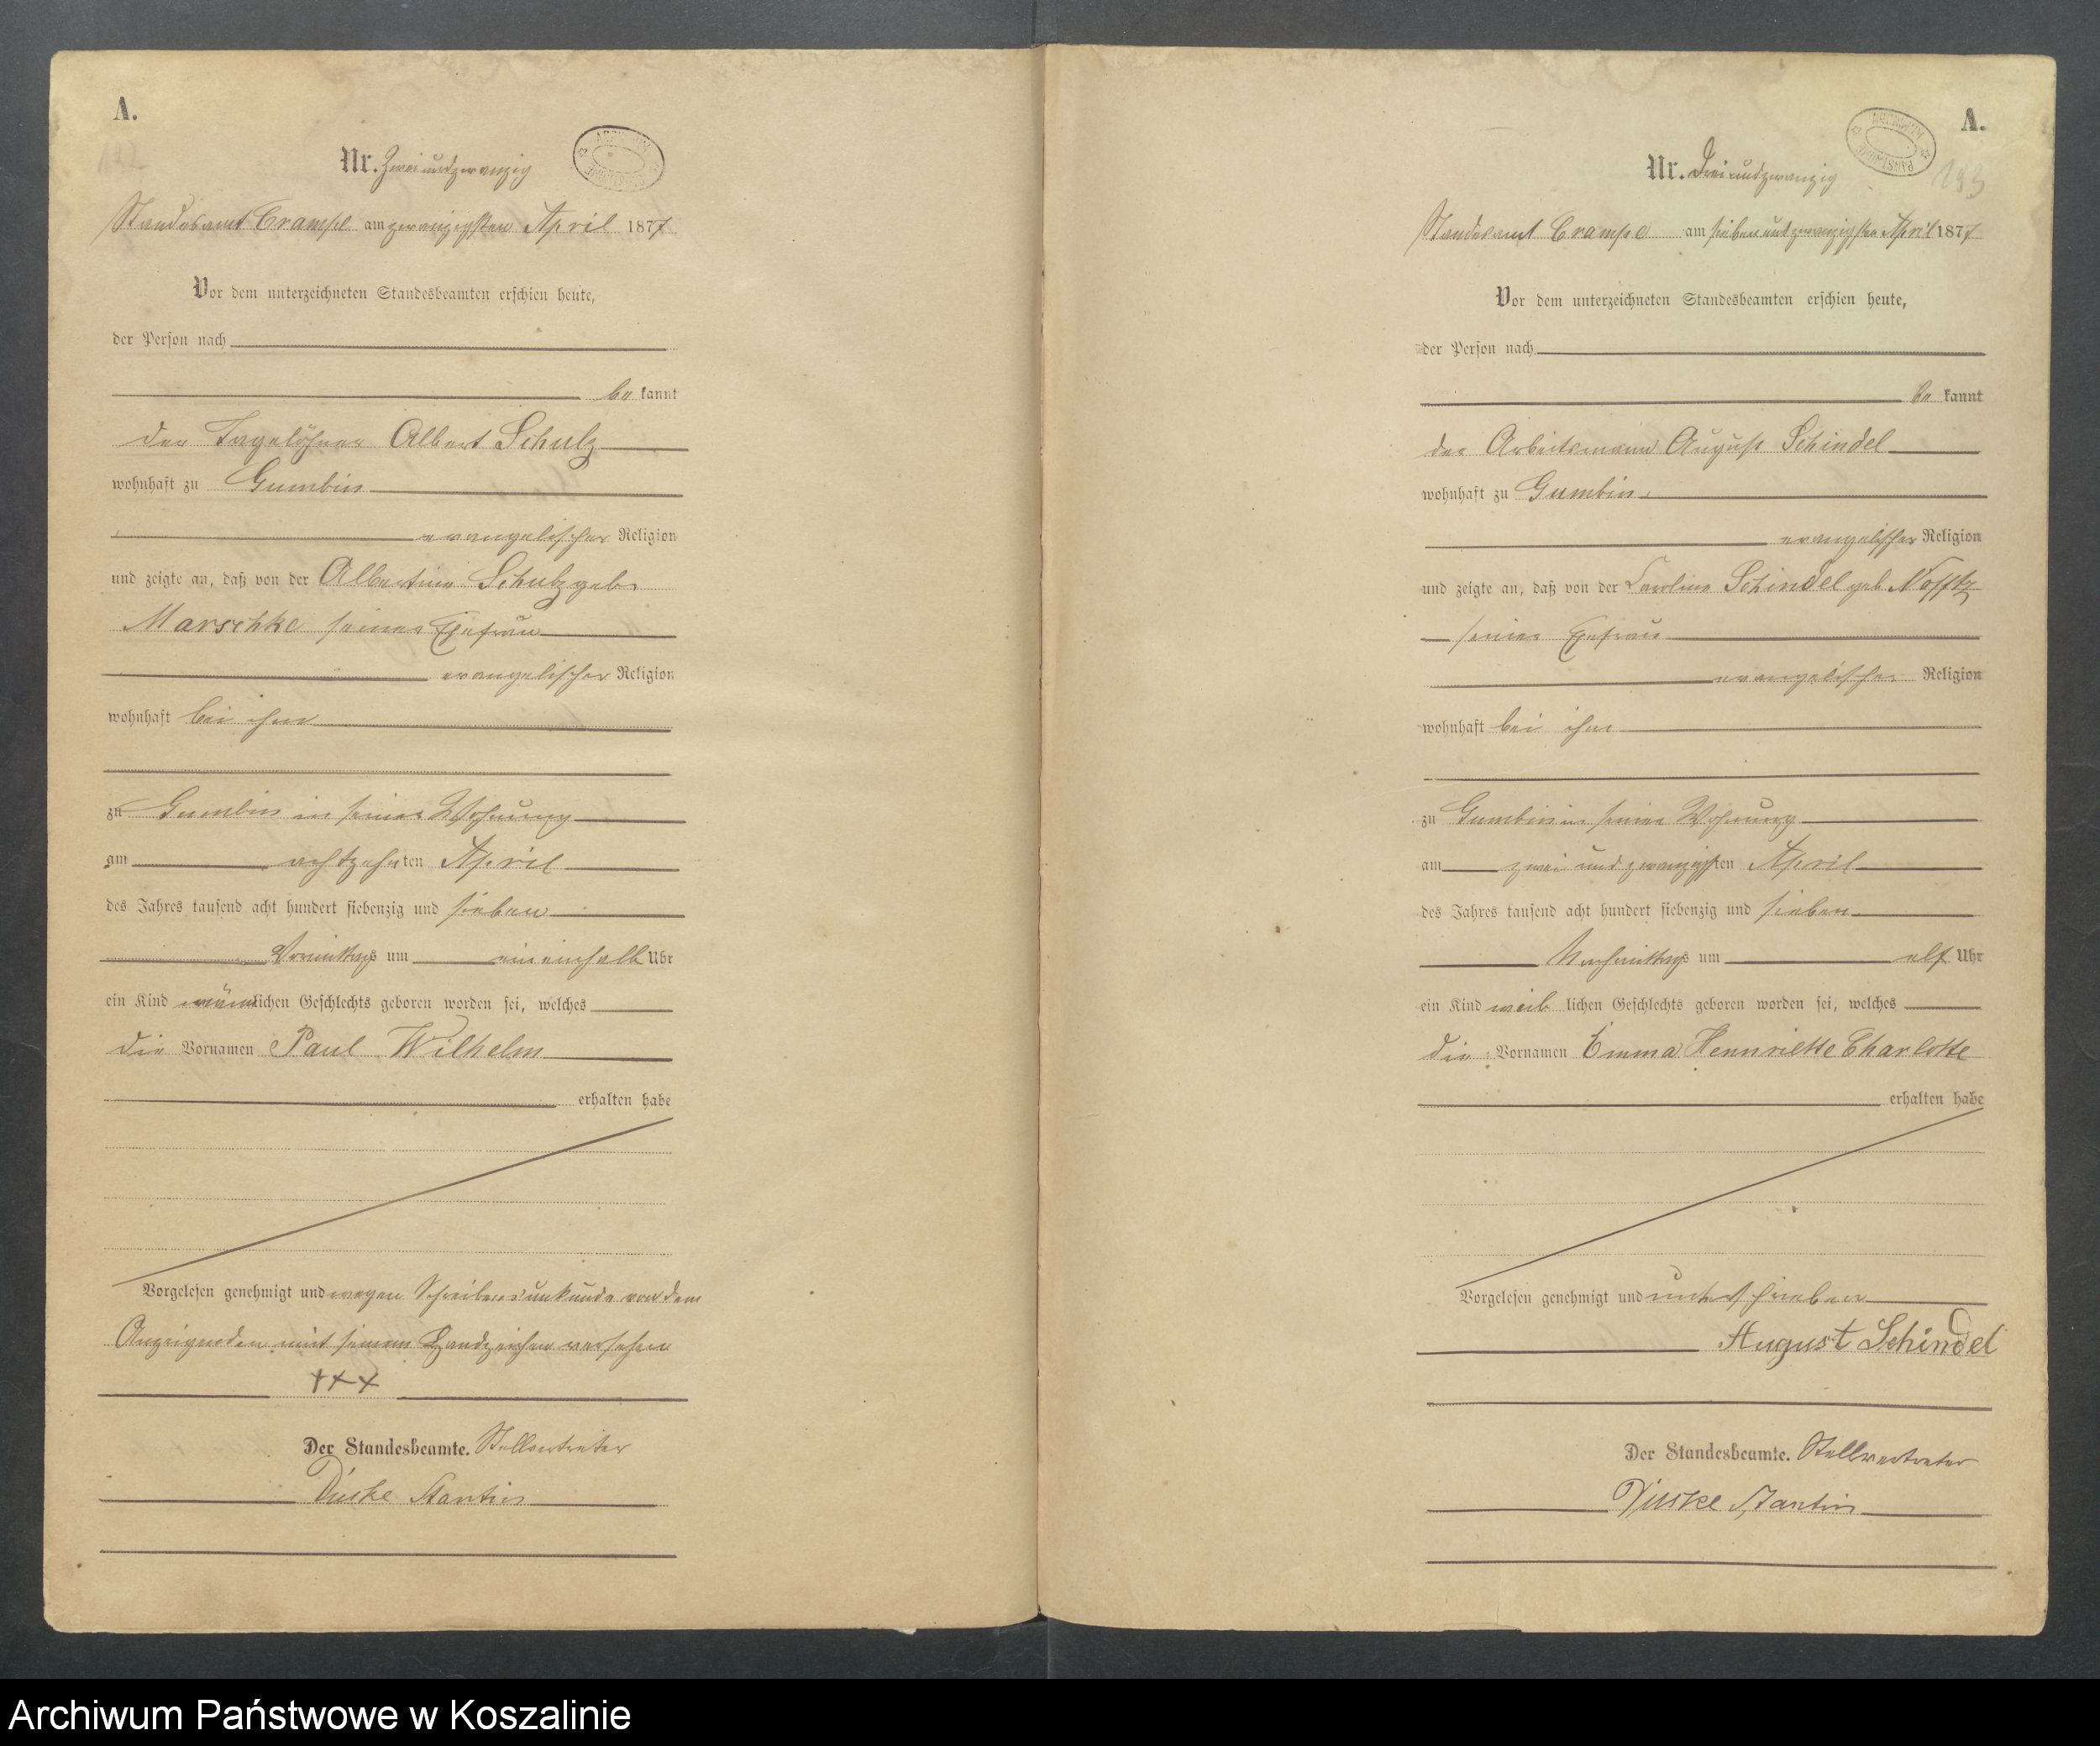 A.
Nr. Zweiundzwanzig
Standesamt Crampe am zwanzigsten April 1877
Vor dem unterzeichneten Standesbeamten erschien heute,
der Person nach
be kannt
der Tagelöhner Albert Schulz
wohnhaft zu Gumbin
evangelischer Religion
und zeigte an, daß von der Albertine Schulz geb.
Marschke seiner Ehefrau
evangelischer Religion
wohnhaft bei ihm
zu Gumbin in seiner Wohnung
am achtzehnten April
des Jahres tausend acht hundert siebenzig und sieben
Vormittags um Uhr
ein Kind männlichen Geschlechts geboren worden sei, welches
die Vornamen Paul Wilhelm
erhalten habe
Vorgelesen genehmigt und wegen Schreibensunkunde von dem
Anzeigenden mit seinem Handzeichen versehen
+++
Der Standesbeamte. Stellvertreter
A.
193
Nr. Dreiundzwanzig
Standesamt Crampe am siebenundzwanzigsten April 1877
Vor dem unterzeichneten Standesbeamten erschien heute,
der Person nach
be kannt
der Arbeitsmann August Schindel
wohnhaft zu Gumbin
evangelischer Religion
und zeigte an, daß von der Caroline Schindel geb.
seiner Ehefrau
evangelischer Religion
wohnhaft bei ihm
zu Gumbin in seiner Wohnung
am zwei und zwanzigsten April
des Jahres tausend acht hundert siebenzig und sieben
Nachmittags um elf Uhr
ein Kind weib lichen Geschlechts geboren worden sei, welches
die Vornamen Emma Hennriette Charlotte
erhalten habe
Vorgelesen genehmigt und unterschrieben
August Schindel
Der Standesbeamte. Stellvertreter
Archiwum Państwowe w Koszalinie